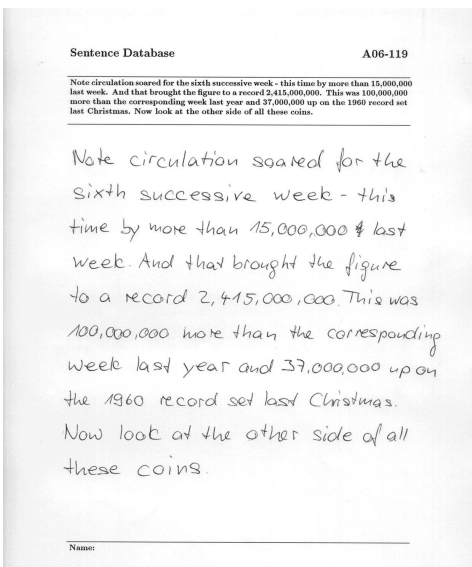 Sentence Database A06-119
Note circulation soared for the sixth successive week - this time by more than 15,000,000
last week. And that brought the figure to a record 2,415,000,000. This was 100,000,000
more than the corresponding week last year and 37,000,000 up on the 1960 record set
last Christmas. Now look at the other side of all these coins.
Note circulation soared for the
sixth successive week - this
time by more than 15,000,000 last
week. And that brought the figure
to a record 2,415,000,000. This was
100,000,000 more than the corresponding
week last year and 37,000,000 up on
the 1960 record set last Christmas.
Now look at the other side of all
these coins.
Name: